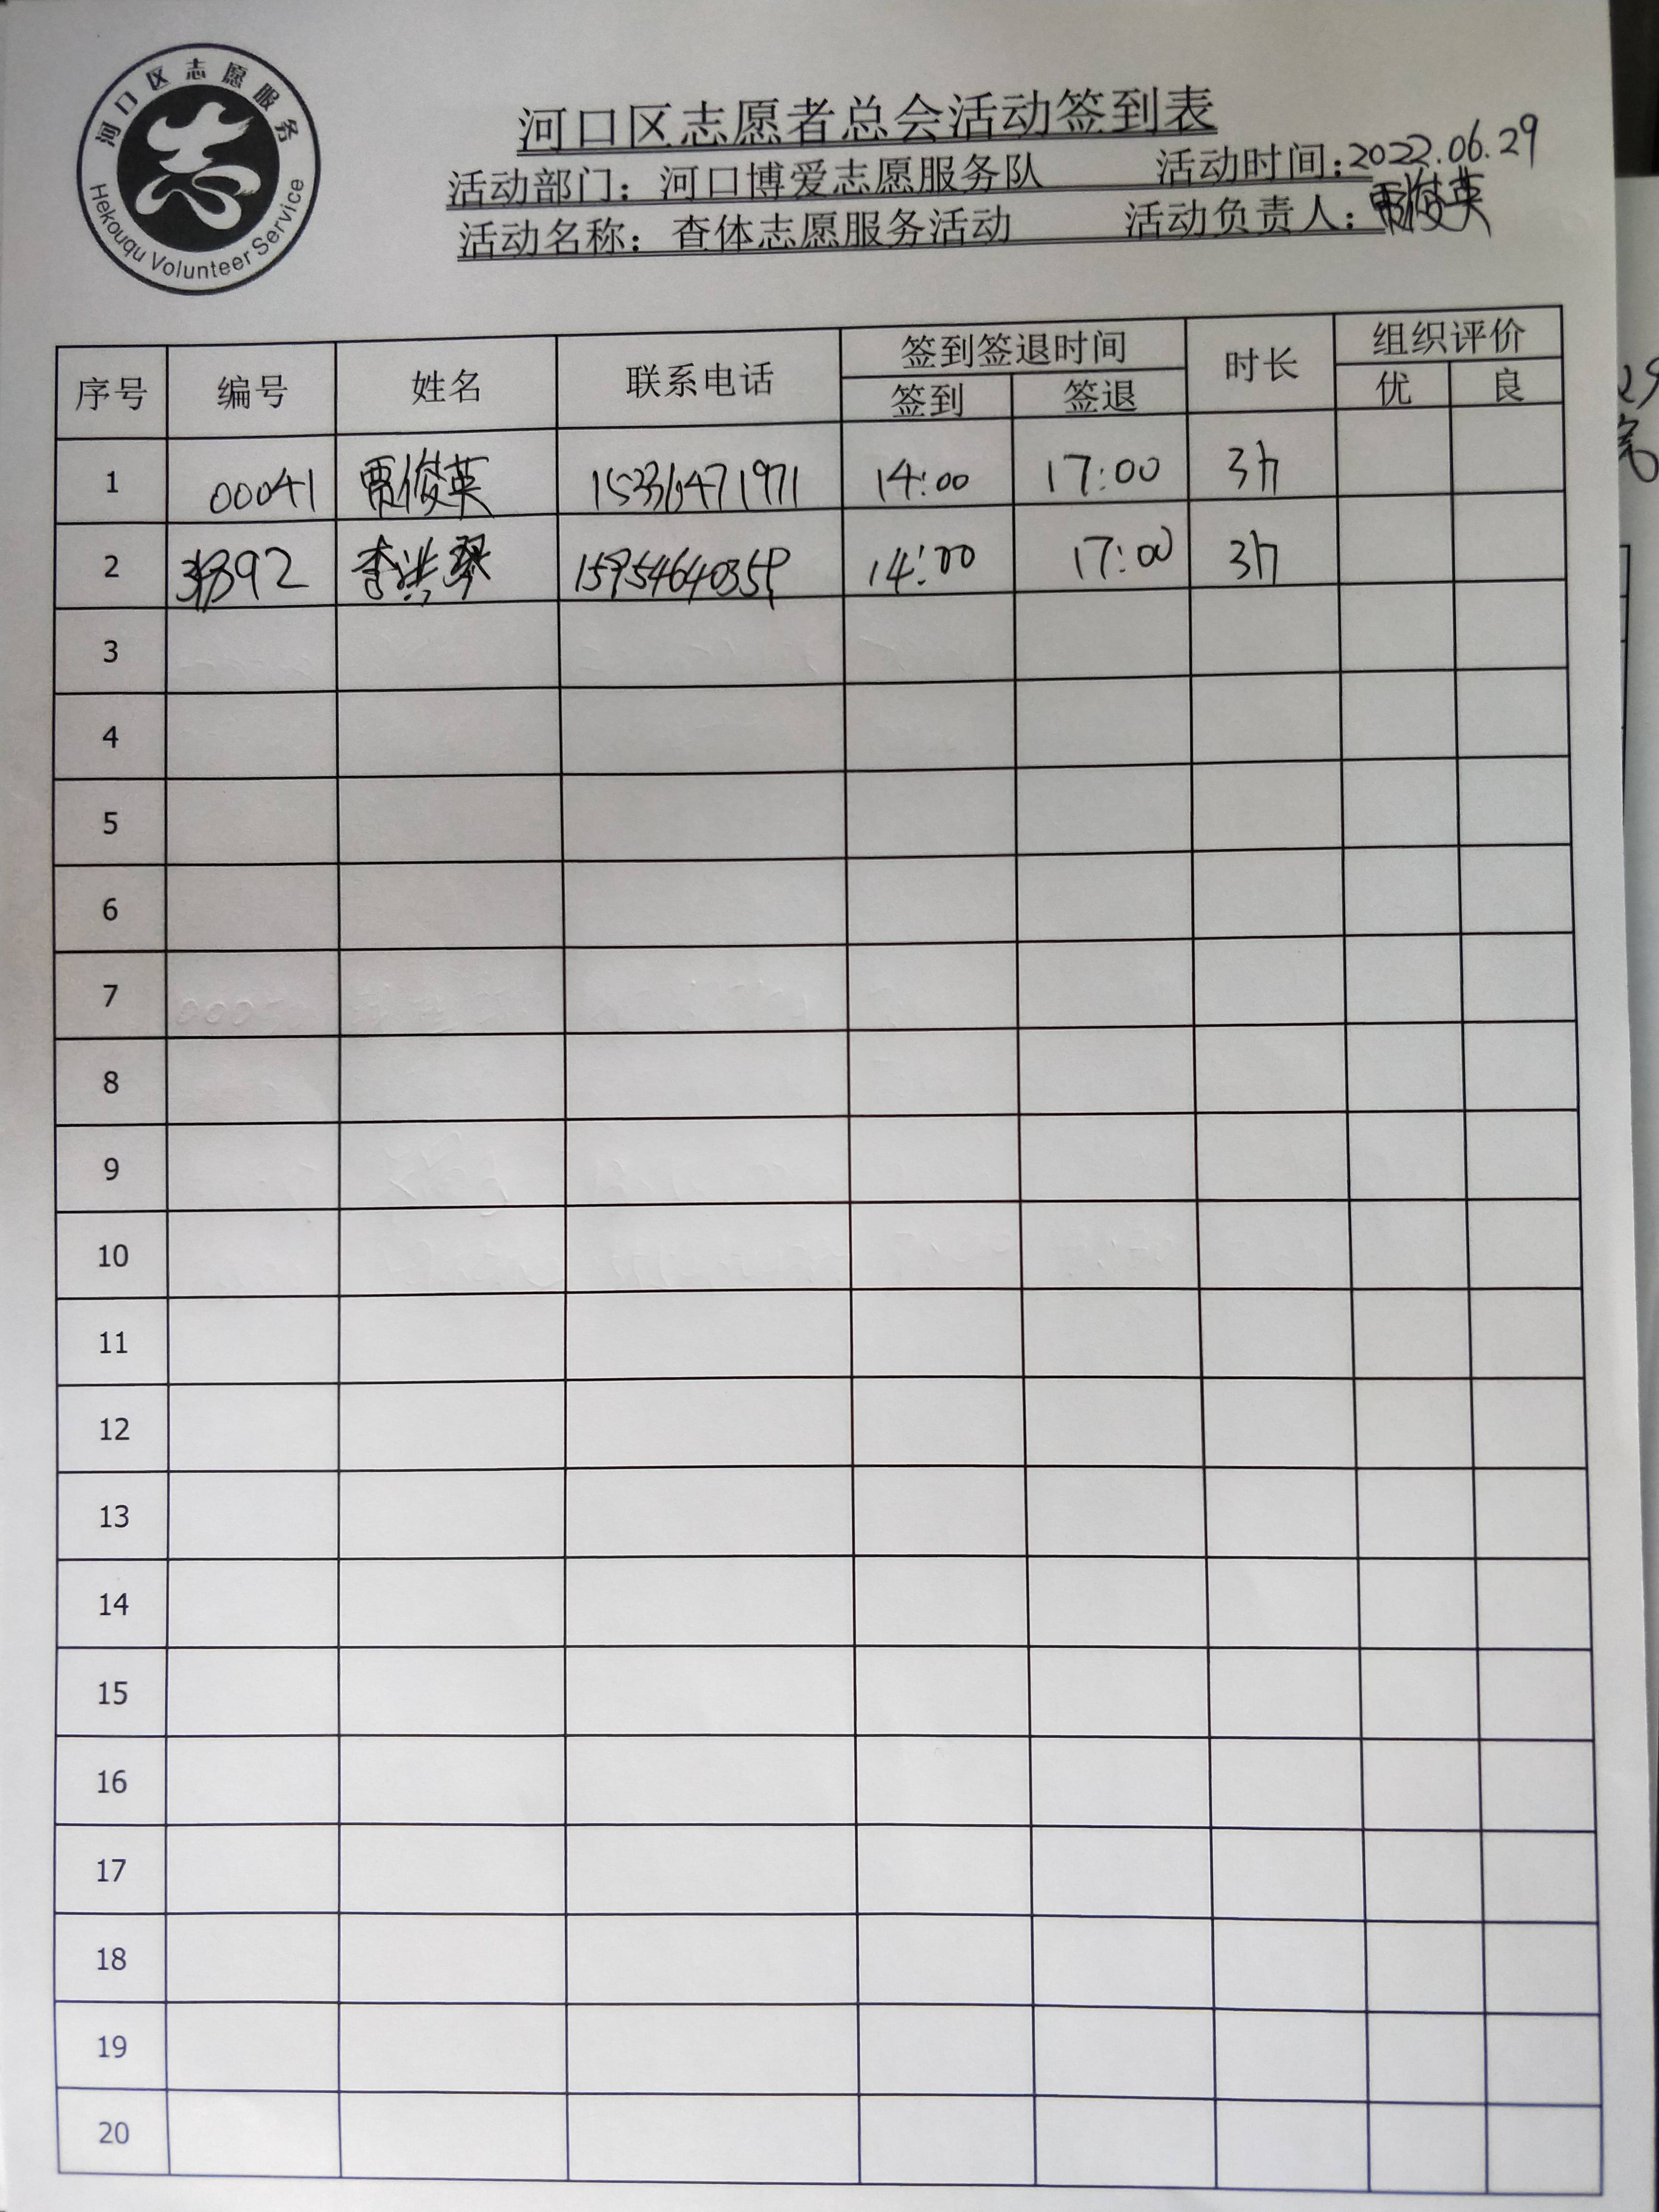 河口区志愿服务
Hekouqu Volunteer Service
河口区志愿者总会活动签到表
活动部门：河口博爱志愿服务队 活动时间：2022.06.29
活动名称：查体志愿服务活动 活动负责人：贾俊英
序号 编号 姓名 联系电话 签到签退时间 时长 组织评价
签到 签退 优 良
1 00041 贾俊英 15336471971 14:00 17:00 3h
2 李洪翠 15954640359 14:00 17:00 3h
3
4
5
6
7
8
9
10
11
12
13
14
15
16
17
18
19
20